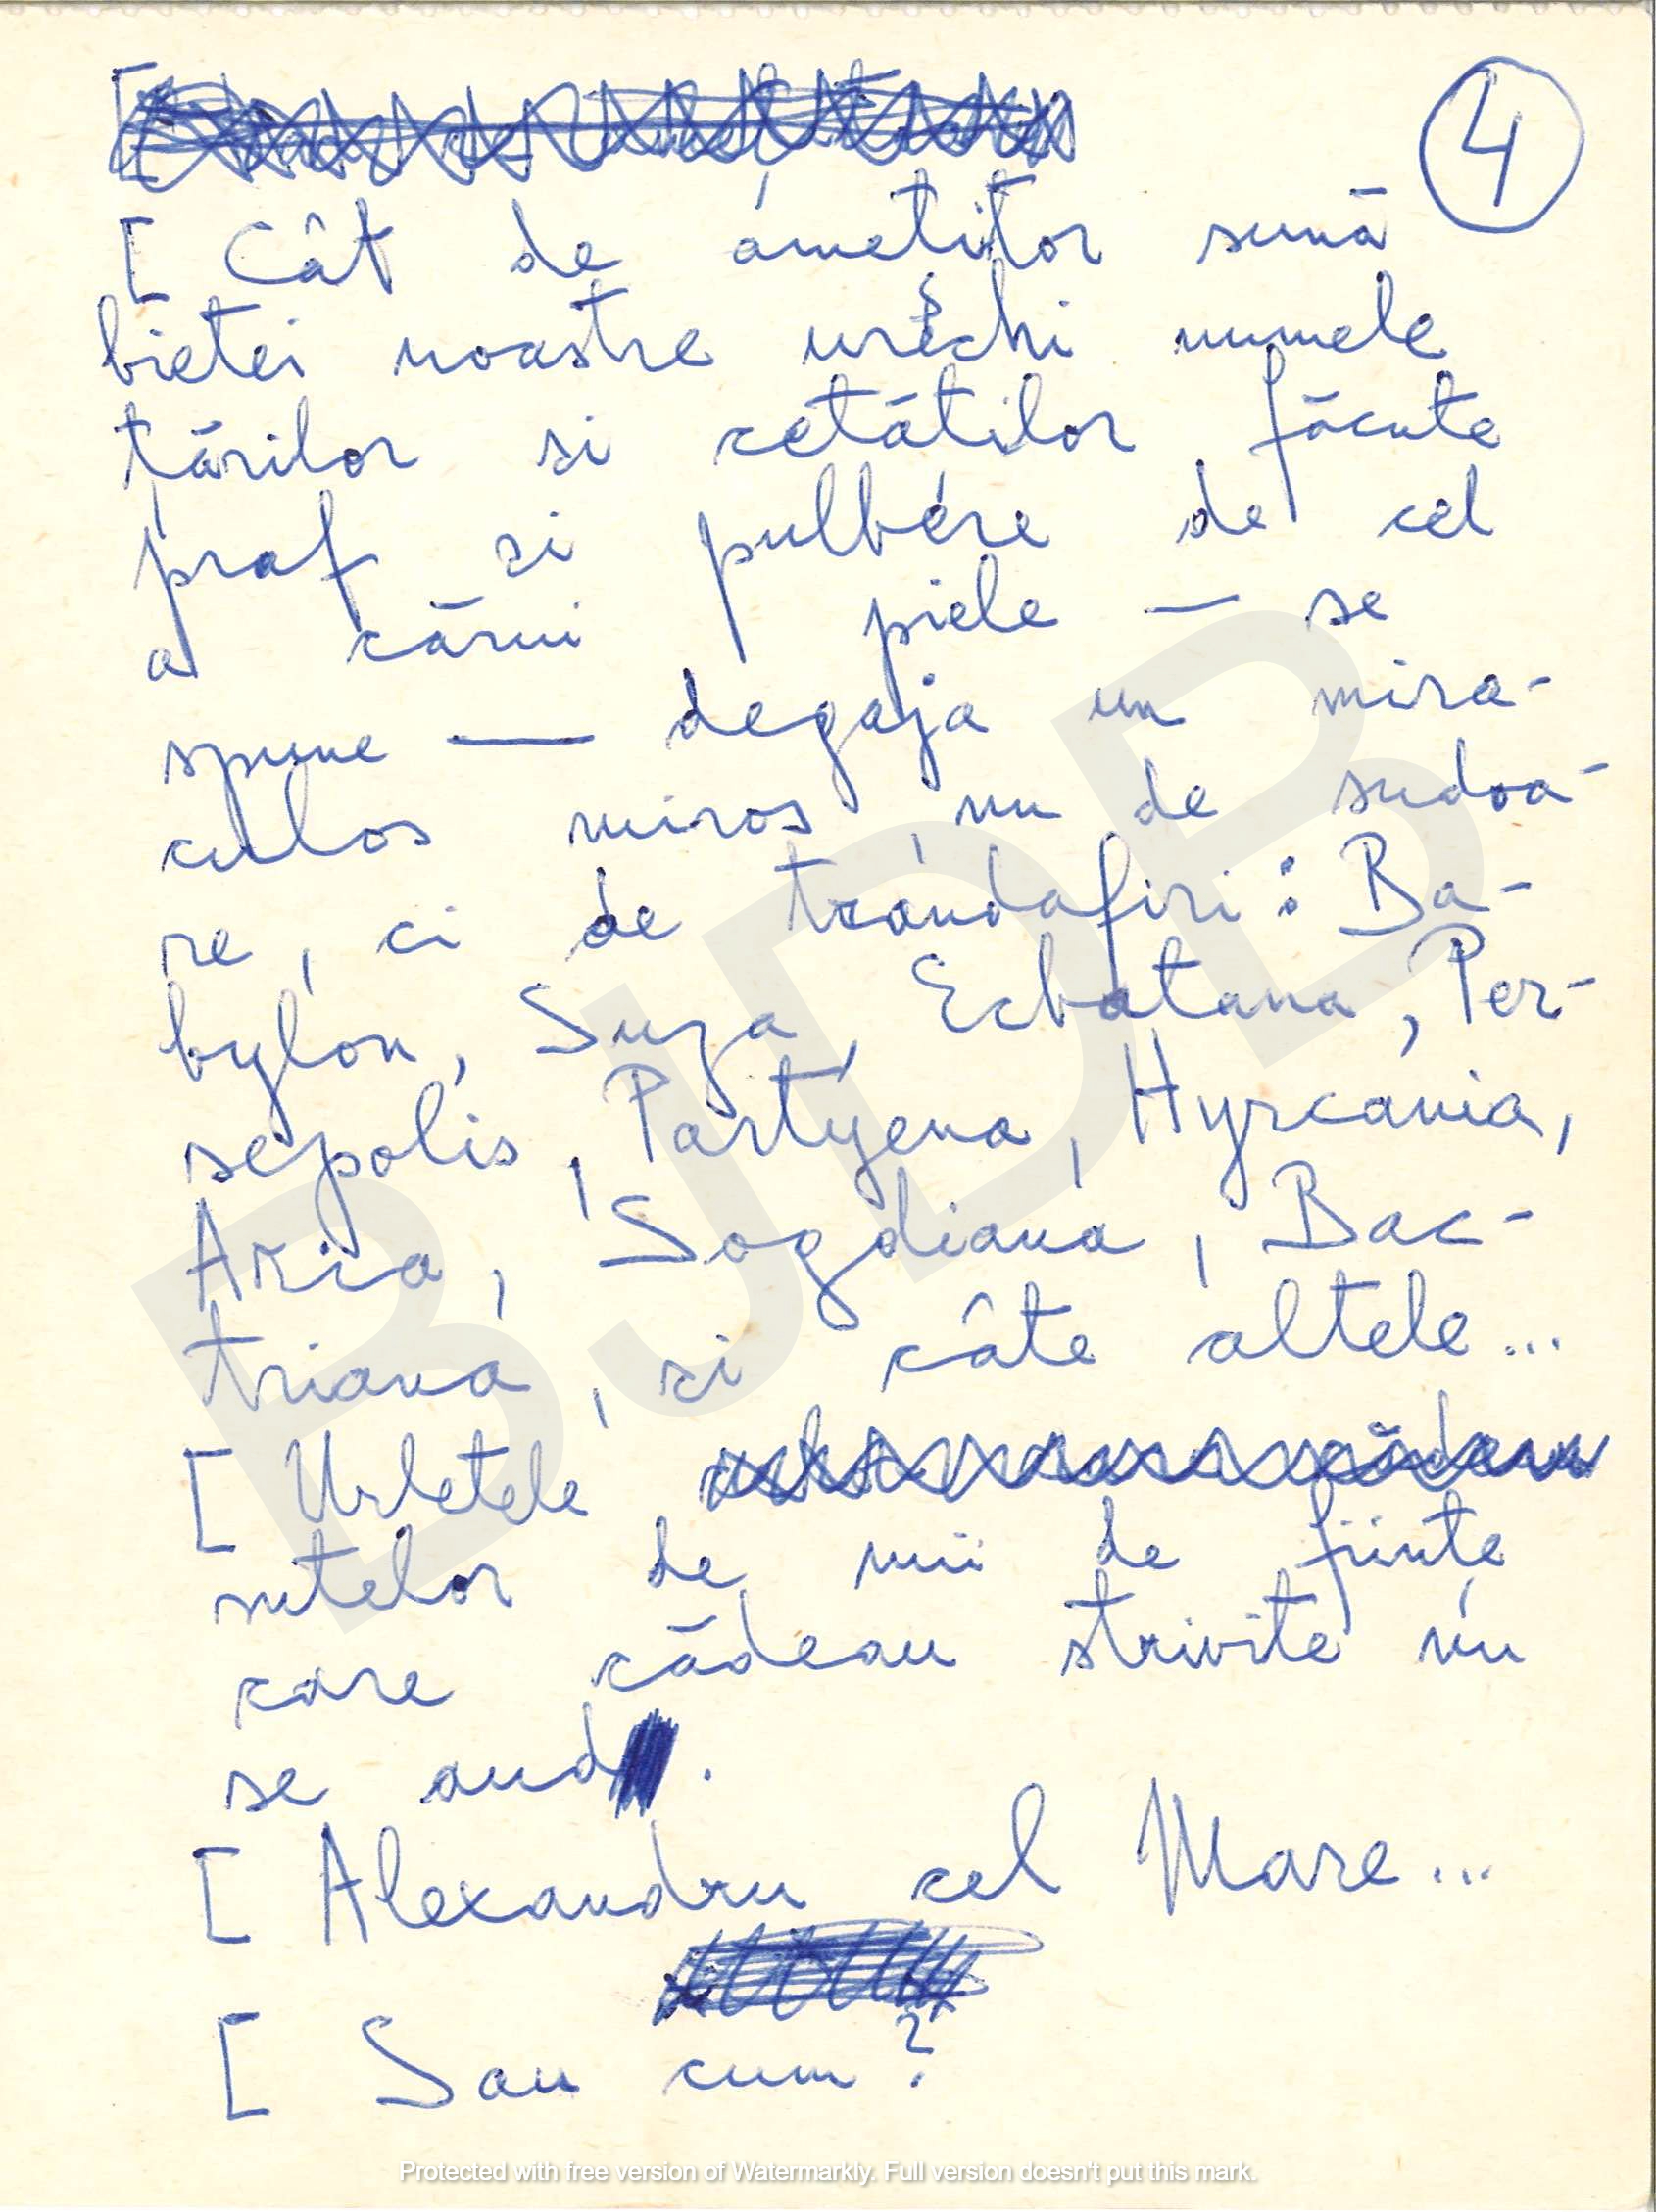 4
[ Cât de ametitor sună
bietei noastre urechi numele
tărilor si cetătilor făcute
praf si pulbere de cel
a cărui piele — se
spune — degaja un mira-
culos miros nu de sudoa-
re, ci de trandafiri: Ba-
bylon, Suza, Ecbatana, Per-
sepolis, Partyena, Hyrcania,
Aria, Sogdiana, Bac-
triana, si câte altele...
[ Urletele
sutelor de mii de ființe
care cădeau strivite nu
se aud.
[ Alexandru cel Mare...
[ Sau cum?
BJDB
Protected with free version of Watermarkly. Full version doesn't put this mark.